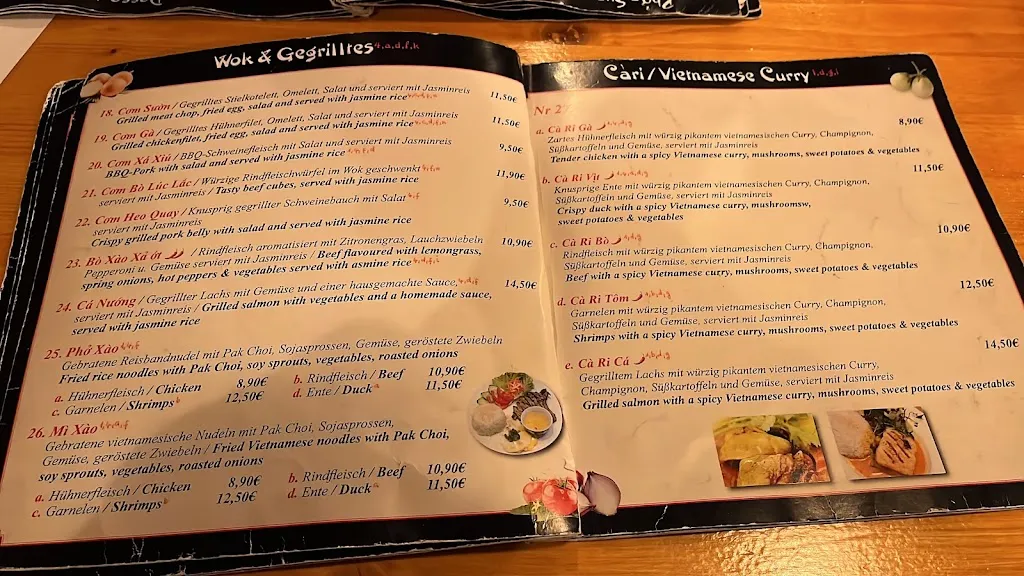 Wok & Gegrilltes 4,a,d,f,k
18. Cơm Sườn / Gegrilltes Stielkotelett, Omelett, Salat und serviert mit Jasminreis 11,50€
Grilled meat chop, fried egg, salad and served with jasmine rice
19. Cơm Gà / Gegrilltes Hühnerfilet, Omelett, Salat und serviert mit Jasminreis 11,50€
Grilled chickenfilet, fried egg, salad and served with jasmine rice
20. Cơm Xá Xíu / BBQ-Schweinefleisch mit Salat und serviert mit Jasminreis 9,50€
BBQ-Pork with salad and served with jasmine rice
21. Cơm Bò Lúc Lắc / Würzige Rindfleischwürfel im Wok geschwenkt
serviert mit Jasminreis / Tasty beef cubes, served with jasmine rice 11,90€
22. Cơm Heo Quay / Knusprig gegrillter Schweinebauch mit Salat
serviert mit Jasminreis 9,50€
Crispy grilled pork belly with salad and served with jasmine rice
23. Bò Xào Xả ớt / Rindfleisch aromatisiert mit Zitronengras, Lauchzwiebeln
Pepperoni u. Gemüse serviert mit Jasminreis / Beef flavoured with lemongrass, 10,90€
spring onions, hot peppers & vegetables served with asmine rice
24. Cá Nướng / Gegrillter Lachs mit Gemüse und einer hausgemachte Sauce,
serviert mit Jasminreis / Grilled salmon with vegetables and a homemade sauce, 14,50€
served with jasmine rice
25. Phở Xào
Gebratene Reisbandnudel mit Pak Choi, Sojasprossen, Gemüse, geröstete Zwiebeln
Fried rice noodles with Pak Choi, soy sprouts, vegetables, roasted onions
a. Hühnerfleisch / Chicken 8,90€ b. Rindfleisch / Beef 10,90€
c. Garnelen / Shrimps 12,50€ d. Ente / Duck 11,50€
26. Mì Xào
Gebratene vietnamesische Nudeln mit Pak Choi, Sojasprossen,
Gemüse, geröstete Zwiebeln / Fried Vietnamese noodles with Pak Choi,
soy sprouts, vegetables, roasted onions
a. Hühnerfleisch / Chicken 8,90€ b. Rindfleisch / Beef 10,90€
c. Garnelen / Shrimps 12,50€ d. Ente / Duck 11,50€
Càri / Vietnamese Curry
Nr 27
a. Cà Ri Gà 8,90€
Zartes Hühnerfleisch mit würzig pikantem vietnamesischen Curry, Champignon,
Süßkartoffeln und Gemüse, serviert mit Jasminreis
Tender chicken with a spicy Vietnamese curry, mushrooms, sweet potatoes & vegetables
b. Cà Ri Vịt 11,50€
Knusprige Ente mit würzig pikantem vietnamesischen Curry, Champignon,
Süßkartoffeln und Gemüse, serviert mit Jasminreis
Crispy duck with a spicy Vietnamese curry, mushroomsw,
sweet potatoes & vegetables
c. Cà Ri Bò 10,90€
Rindfleisch mit würzig pikantem vietnamesischen Curry, Champignon,
Süßkartoffeln und Gemüse, serviert mit Jasminreis
Beef with a spicy Vietnamese curry, mushrooms, sweet potatoes & vegetables
d. Cà Ri Tôm 12,50€
Garnelen mit würzig pikantem vietnamesischen Curry, Champignon,
Süßkartoffeln und Gemüse, serviert mit Jasminreis
Shrimps with a spicy Vietnamese curry, mushrooms, sweet potatoes & vegetables
e. Cà Ri Cá 14,50€
Gegrilltem Lachs mit würzig pikantem vietnamesischen Curry,
Champignon, Süßkartoffeln und Gemüse, serviert mit Jasminreis
Grilled salmon with a spicy Vietnamese curry, mushrooms, sweet potatoes & vegetables